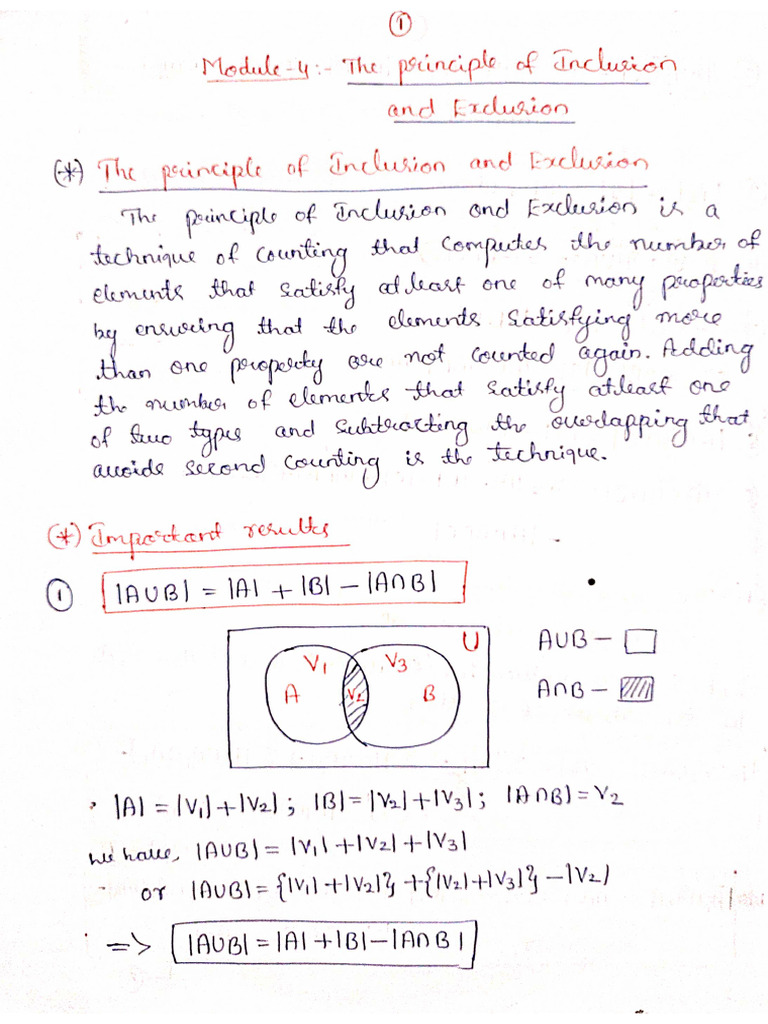 ①
Module-4:- The principle of Inclusion
and Exclusion
(*) The principle of Inclusion and Exclusion
The principle of Inclusion and Exclusion is a
technique of counting that computes the number of
elements that satisfy atleast one of many properties
by ensuring that the elements satisfying more
than one property are not counted again. Adding
the number of elements that satisfy atleast one
of two types and subtracting the overlapping that
avoids second counting is the technique.
(*) Important results
① |A∪B| = |A| + |B| - |A∩B|
U
V1 V3
A V2 B
A∪B -
A∩B -
|A| = |V1| + |V2| ; |B| = |V2| + |V3| ; |A∩B| = V2
we have, |A∪B| = |V1| + |V2| + |V3|
or |A∪B| = {|V1| + |V2|} + {|V2| + |V3|} - |V2|
=> |A∪B| = |A| + |B| - |A∩B|